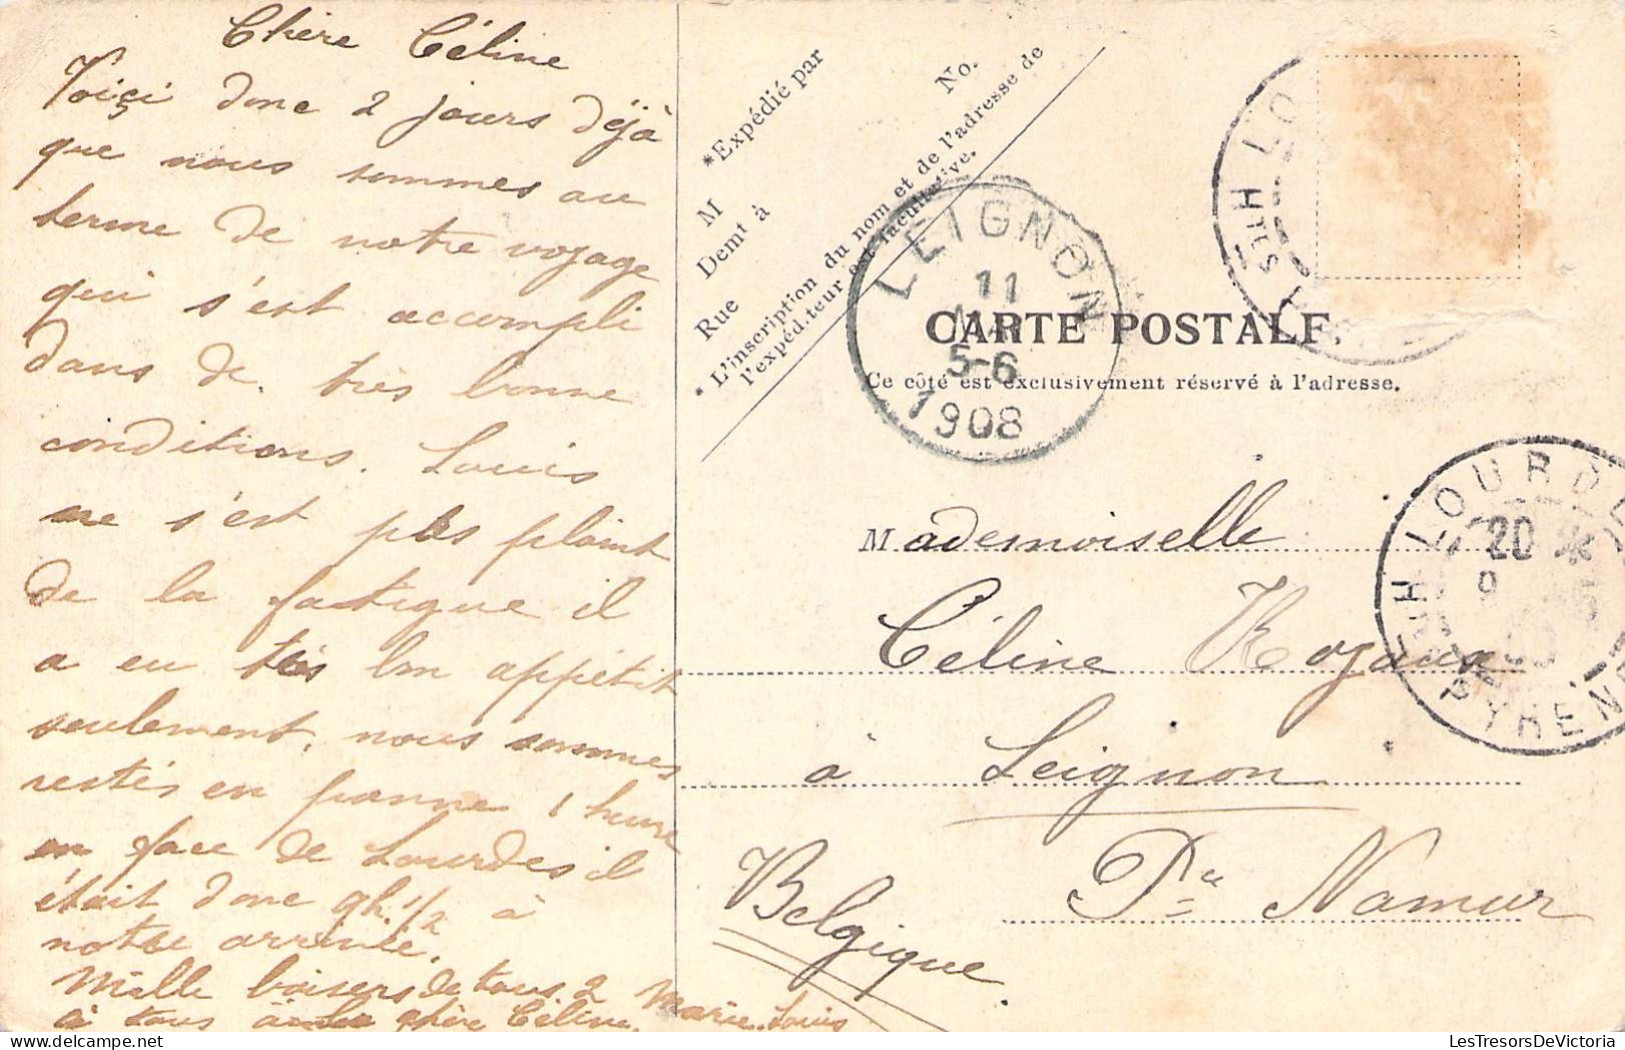 Chère Céline
Voiçi donc 2 jours déjà
que nous sommes au
terme de notre voyage
qui s'est accompli
dans de très bonne
conditions. Louis
ne s'est pas plaint
de la fatigue il
a eu très bon appétit
seulement, nous sommes
restés en panne 1 heure
en face de Lourdes il
était donc 9h. 1/2 à
notre arrivée.
Mille baisers de tous 2
à tous à chère Céline. Marie. Louis
*Expédié par
M
Demt à
Rue No.
* L'inscription du nom et de l'adresse de
l'expéd.teur est facultative.
LEIGNON
11
MAI
5-6
1908
CARTE POSTALE.
Ce côté est exclusivement réservé à l'adresse.
LO
HTES
LOURDE
20
9
HTES PYREN
Mademoiselle
Céline Rogaux
à Leignon
Pce Namur
Belgique.
LesTresorsDeVictoria.com